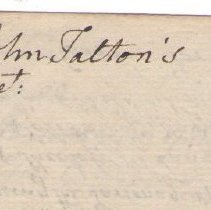 ohn Talton's
et: